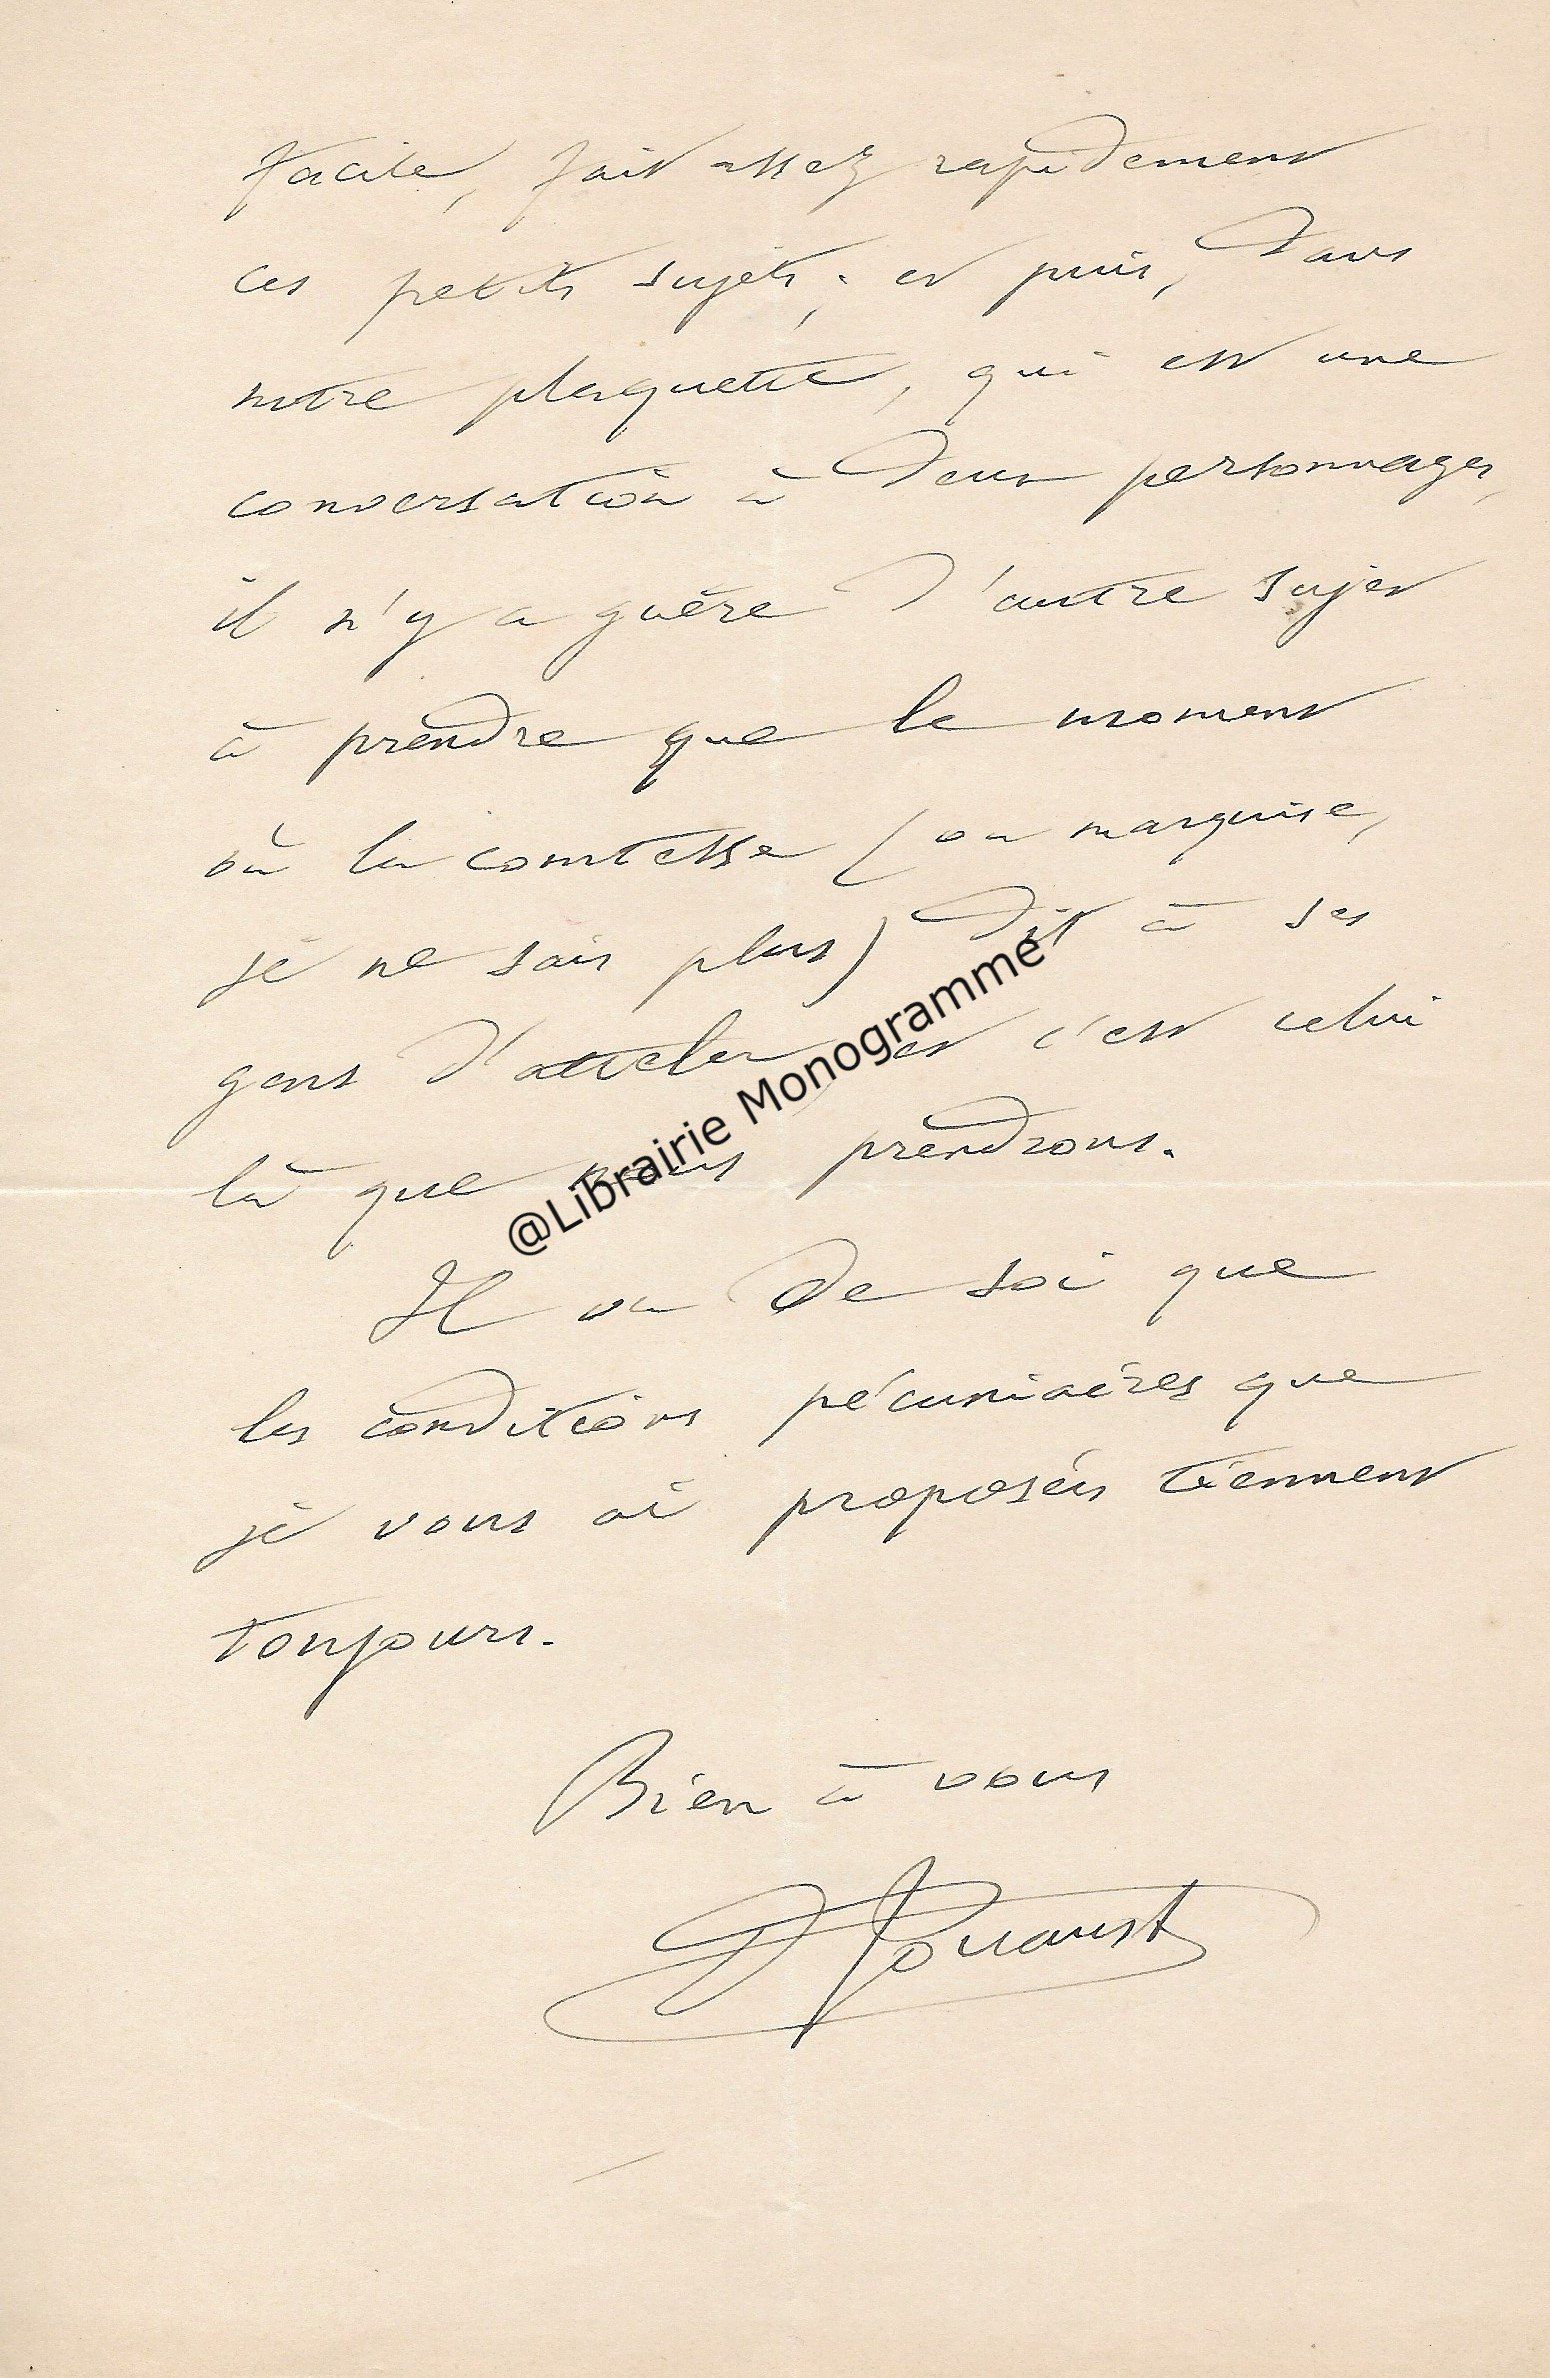 facile, fait assez rapidement
ces petits sujets ; et puis, dans
notre plaquette, qui est une
conversation à deux personnages,
il n'y a guère d'autre sujet
à prendre que le moment
où la comtesse (ou marquise,
je ne sais plus) dit à ses
gens d'atteler et c'est celui
là que nous prendrons.
@Librairie Monogramme
Il va de soi que
les conditions pécuniaires que
je vous ai proposées tiennent
toujours.
Bien à vous
D Jouaust